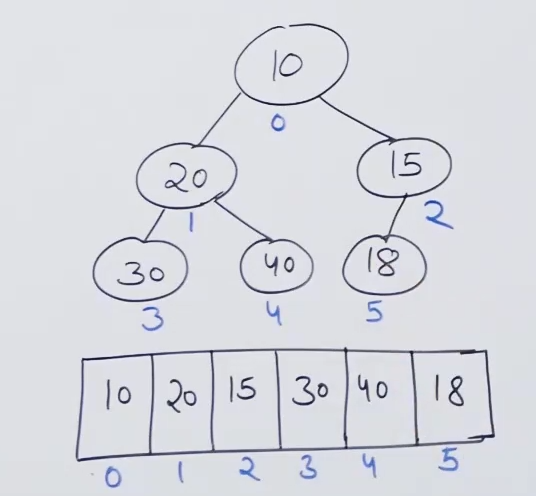 10
0
20 15
1 2
30 40 18
3 4 5
10 20 15 30 40 18
0 1 2 3 4 5